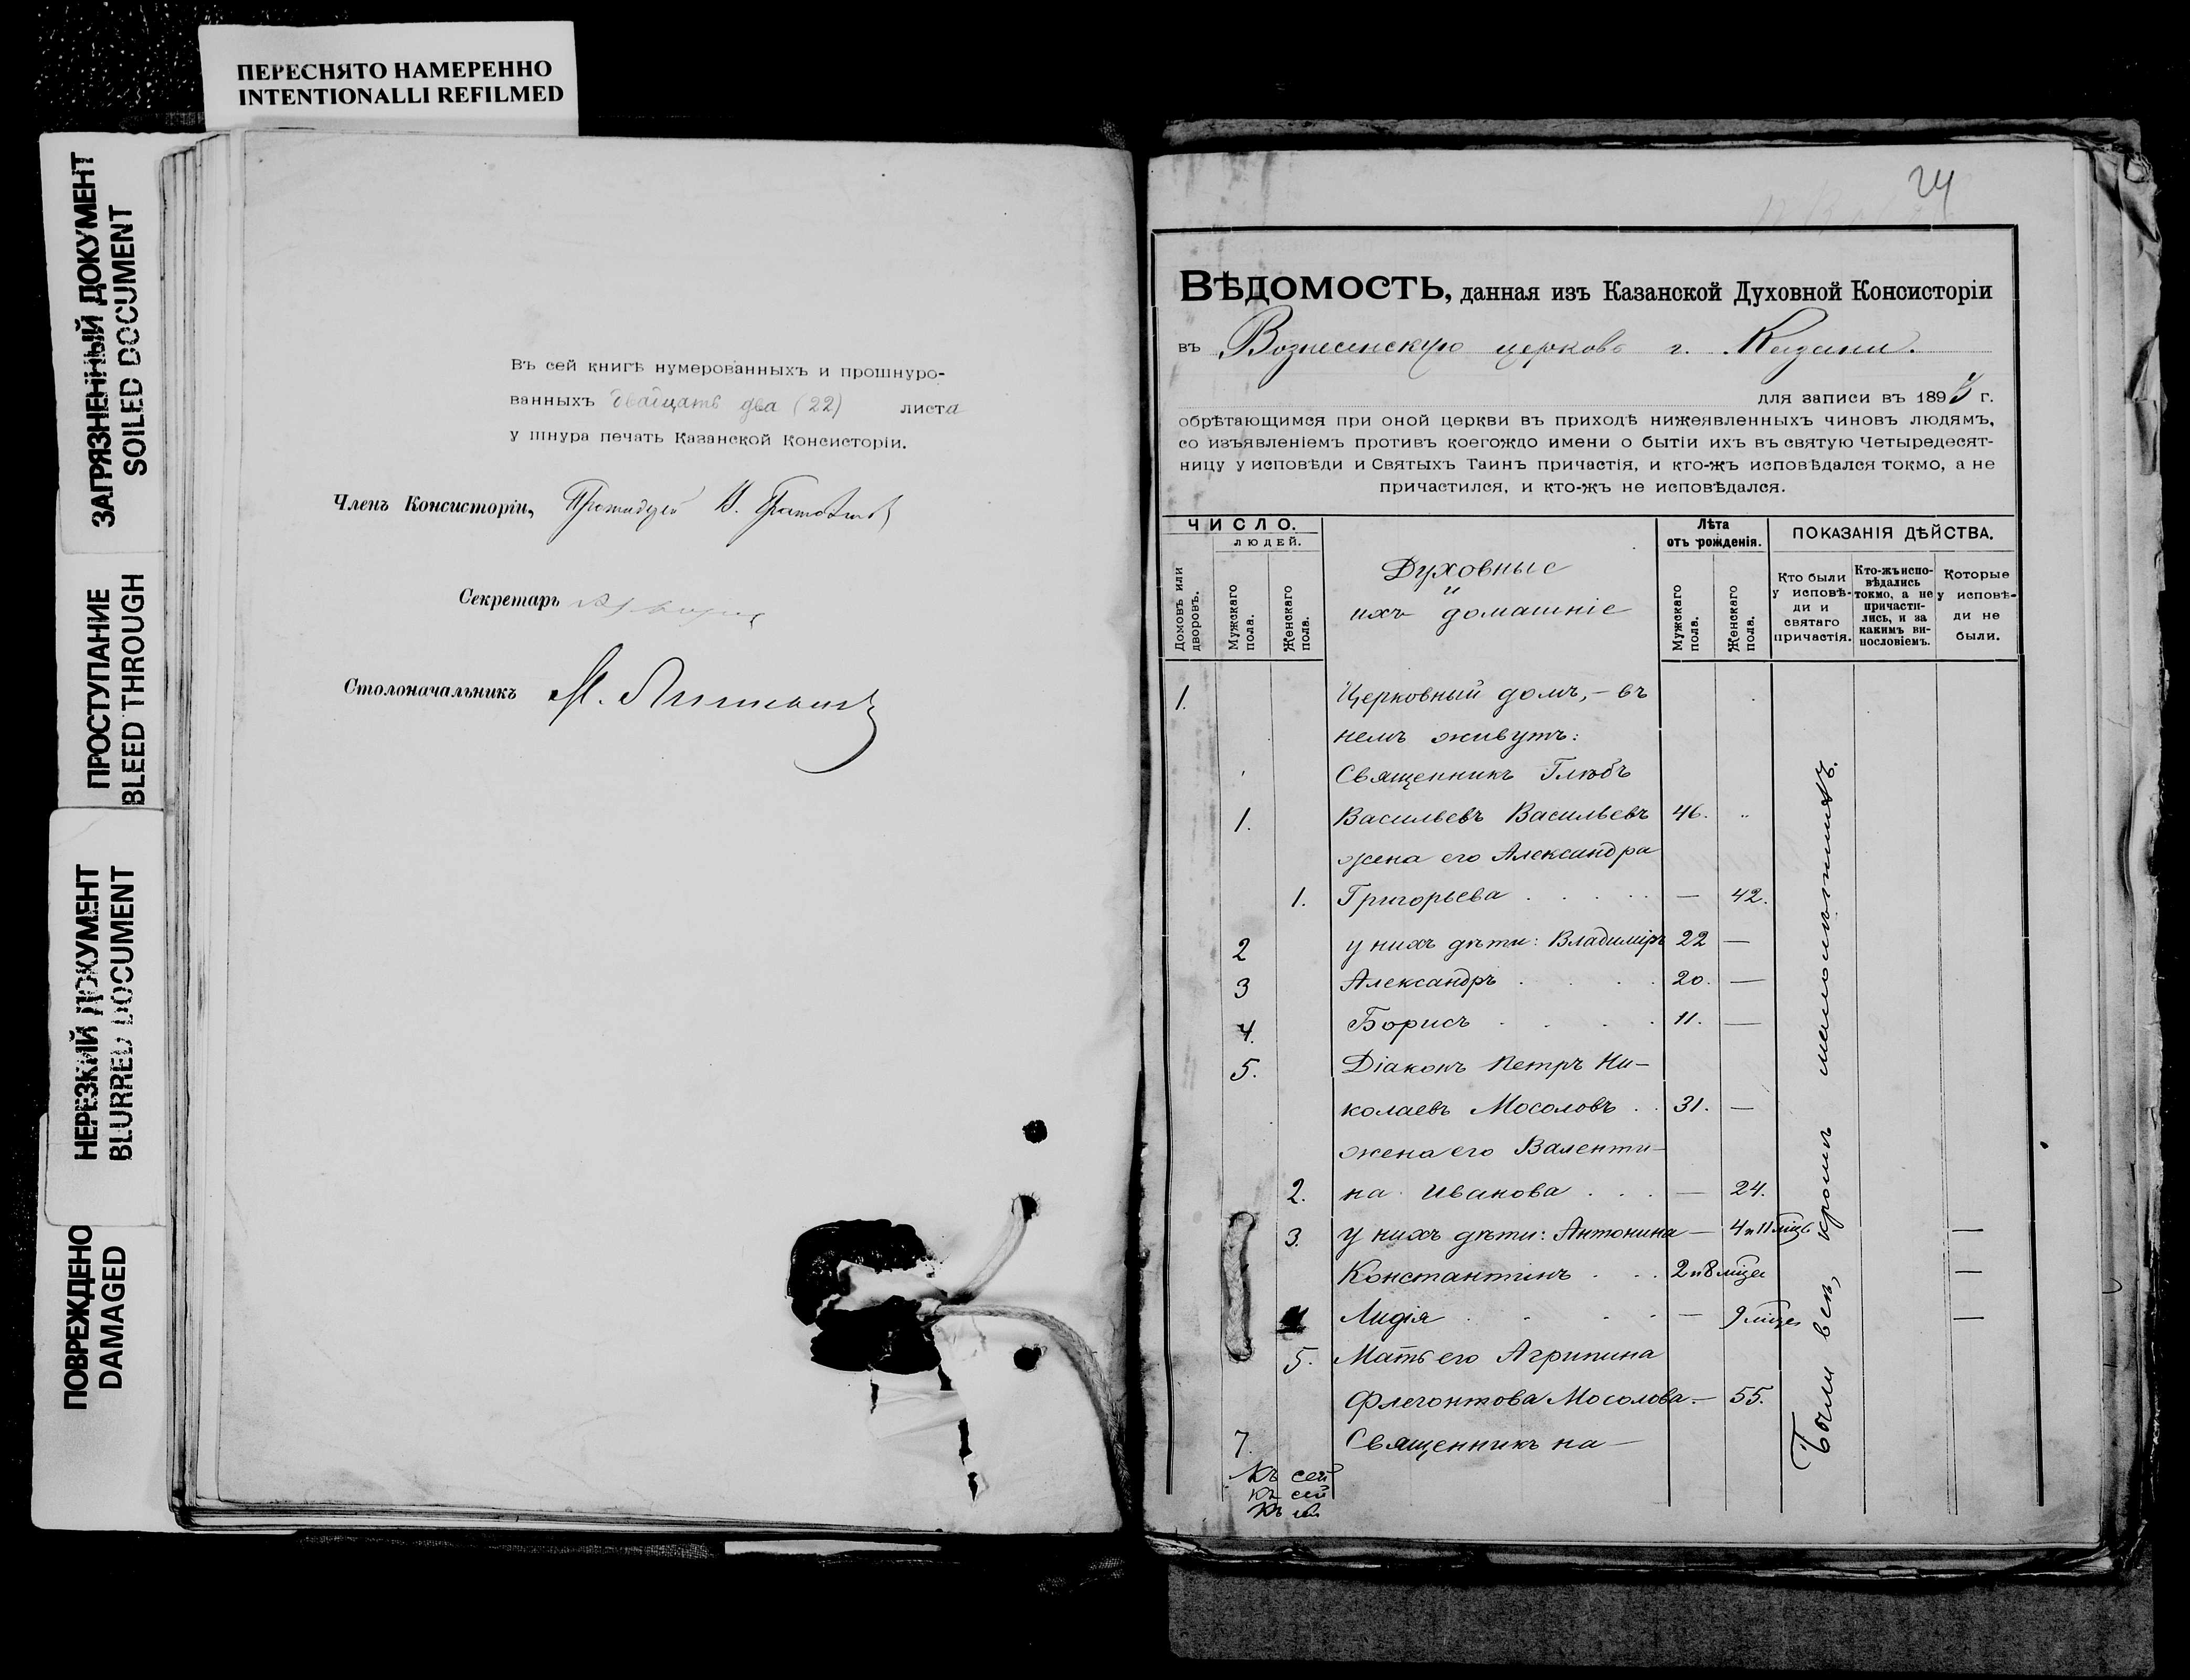 ПЕРЕСНЯТО НАМЕРЕННО
INTENTIONALLI REFILMED
ЗАГРЯЗНЕННЫЙ ДОКУМЕНТ
SOILED DOCUMENT
ПРОСТУПАНИЕ
BLEED THROUGH
НЕРЕЗКИЙ ДОКУМЕНТ
BLURRED DOCUMENT
ПОВРЕЖДЕНО
DAMAGED
Въ сей книгѣ нумерованныхъ и прошнуро-
ванныхъ двадцать два (22) листа
у шнура печать Казанской Консисторіи.
Членъ Консисторіи,
Секретарь
Столоначальникъ
24
Вѣдомость, данная изъ Казанской Духовной Консисторіи
въ Вознесенскую церковь г. Казани.
для записи въ 189 г.
обрѣтающимся при оной церкви въ приходѣ нижеявленныхъ чиновъ людямъ,
со изъявленіемъ противъ коегождо имени о бытіи ихъ въ святую Четыредесят-
ницу у исповѣди и Святыхъ Таинъ причастія, и кто-жъ исповѣдался токмо, а не
причастился, и кто-жъ не исповѣдался.
ЧИСЛО.
людей.
Домовъ или дворовъ.
Мужскаго пола.
Женскаго пола.
Духовные
и
ихъ домашніе
Лѣта
отъ рожденія.
Мужскаго пола.
Женскаго пола.
ПОКАЗАНІЯ ДѢЙСТВА.
Кто были у исповѣди и святаго причастія.
Кто-жъ исповѣдались токмо, а не причастились, и за какимъ винословіемъ.
Которые у исповѣди не были.
1. Церковный домъ, – въ
немъ живутъ:
Священникъ Глѣбъ
1. Васильевъ Васильевъ 46. „
жена его Александра
1. Григорьева . . . . — 42.
2 у нихъ дѣти: Владиміръ 22 —
3 Александръ . . . . 20. —
4. Борисъ . . . . 11. —
5. Діаконъ Петръ Ни-
колаевъ Мосоловъ . . 31. —
жена его Валенти-
2. на Иванова . . . — 24.
3. у нихъ дѣти: Антонина — 4 и 11 мѣц —
Константинъ . . . 2 и 8 мѣце —
4 Лидія . . . . — 9 мѣце —
5. Мать его Агрипина
Флегонтова Мосолова. — 55.
7. Священникъ на-
Къ сей
къ сей
Были всѣ, кромѣ малолѣтнихъ.